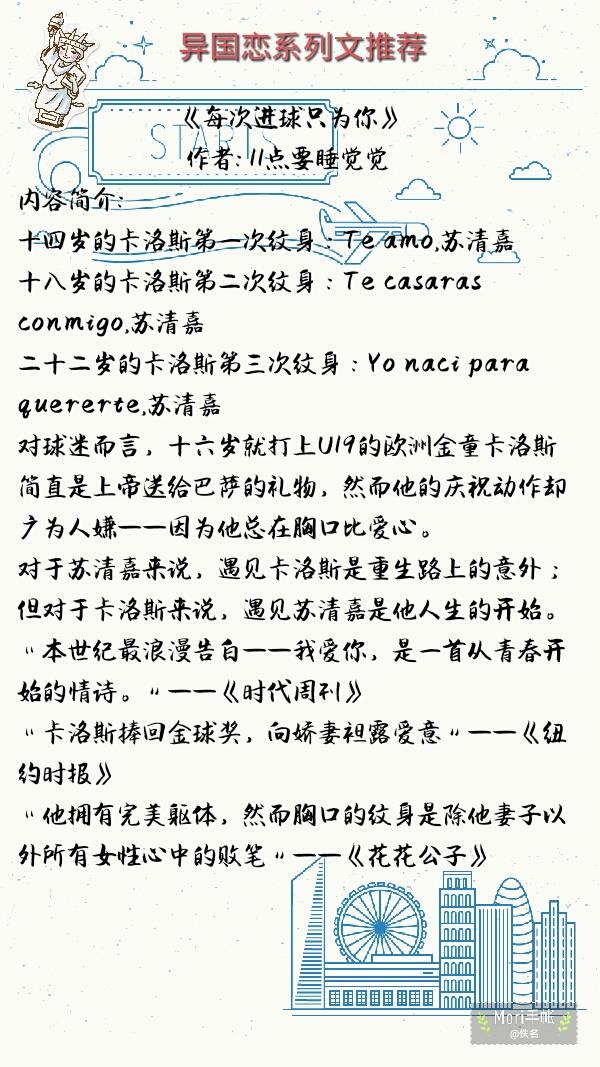 异国恋系列文推荐
START
《每次进球只为你》
作者:11点要睡觉觉
内容简介:
十四岁的卡洛斯第一次纹身：Te amo,苏清嘉
十八岁的卡洛斯第二次纹身：Te casaras
conmigo,苏清嘉
二十二岁的卡洛斯第三次纹身：Yo naci para
quererte,苏清嘉
对球迷而言，十六岁就打上U19的欧洲金童卡洛斯
简直是上帝送给巴萨的礼物，然而他的庆祝动作却
广为人嫌——因为他总在胸口比爱心。
对于苏清嘉来说，遇见卡洛斯是重生路上的意外；
但对于卡洛斯来说，遇见苏清嘉是他人生的开始。
"本世纪最浪漫告白——我爱你，是一首从青春开
始的情诗。"——《时代周刊》
"卡洛斯捧回金球奖，向娇妻袒露爱意"——《纽
约时报》
"他拥有完美躯体，然而胸口的纹身是除他妻子以
外所有女性心中的败笔"——《花花公子》
Mori手帐
@佚名